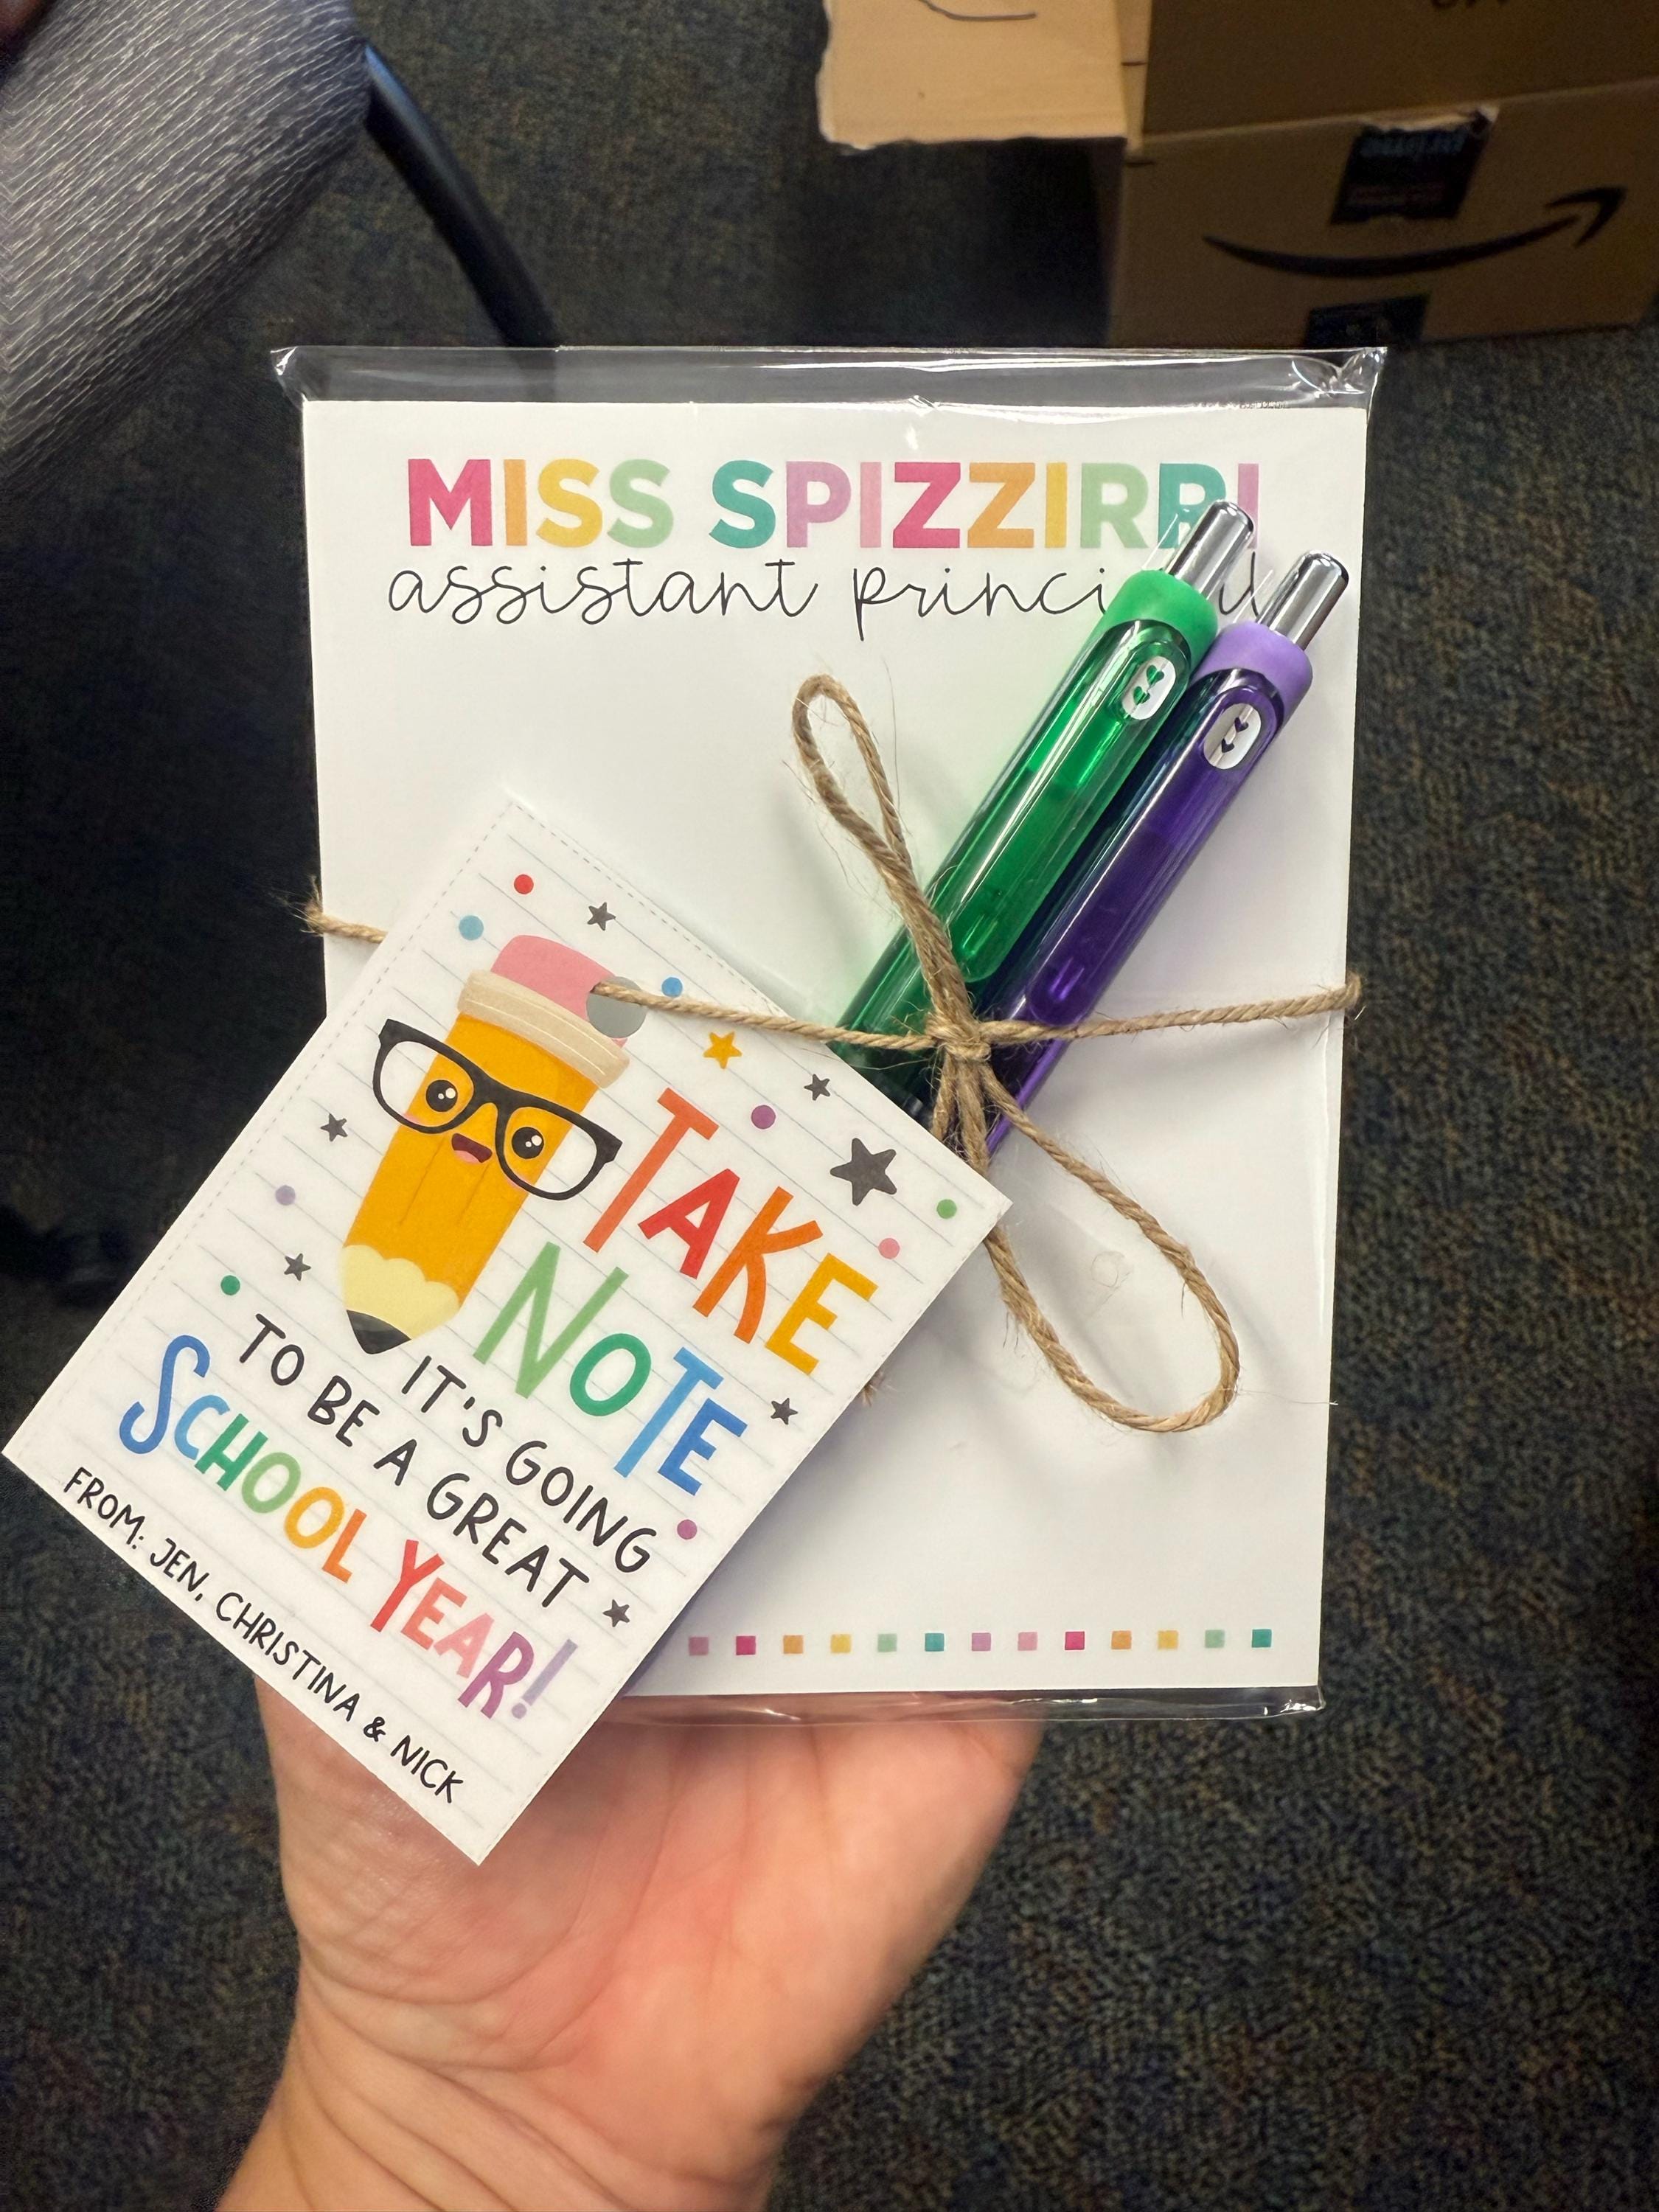 MISS SPIZZIRRI
assistant principal
TAKE
NOTE
IT'S GOING
TO BE A GREAT
SCHOOL YEAR!
FROM: JEN, CHRISTINA & NICK
prime